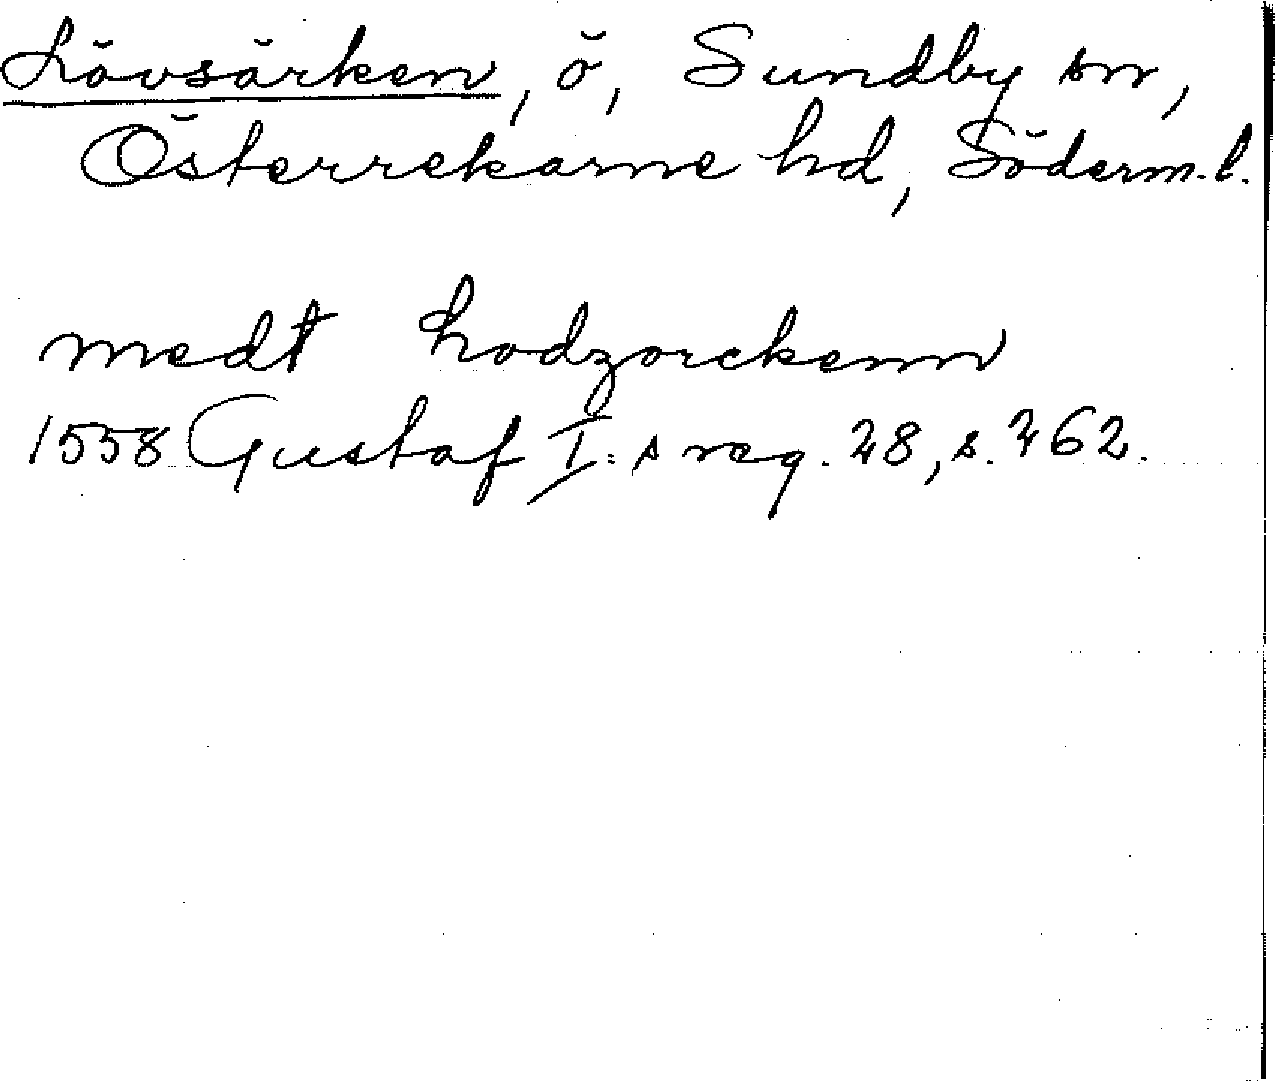 Lövsärken, ö, Sundby sn,
Österrekarne hd, Söderm. l.
medt Lodzorckenn
1558 Gustaf I:s reg. 28, s. 262.